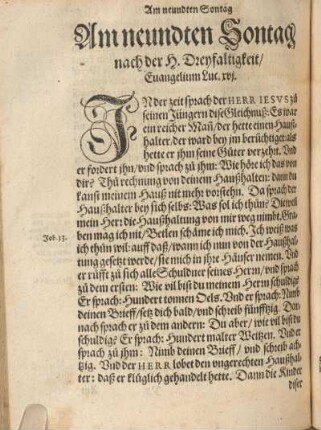 Am neundten Sontag
Am neundten Sontag
nach der H. Dreyfaltigkeit/
Euangelium Luc. xvj.
IN der zeit sprach der HERR IESVS zů
seinen Jüngern dise Gleichnuß: Es war
ein reicher Mañ/ der hette einen Hauß-
halter/ der ward bey jm berüchtiget als
hette er jhm seine Güter verzehrt. Vnd
er fordert jhn/ vnd sprach zů jhm: Wie höre ich das von
dir? Thů rechnung von deinem Haußhalten: dann du
kanst meinem Hauß nit mehr vorstehn. Da sprach der
Haußhalter bey sich selbs: Was sol ich thůn? Dieweil
mein Herr die Haußhaltung von mir weg nimbt. Gra-
ben mag ich nit/ Betlen schäme ich mich. Ich weiß was
ich thůn wil: auff daß/ wann ich nun von der Haußhal-
tung gesetzt werde/ sie mich in jhre Häuser nemen. Vnd
er rüfft zů sich alle Schuldner seines Herrn/ vnd sprach
zů dem ersten: Wie vil bist du meinem Herrn schuldig?
Er sprach: Hundert tonnen Oels. Vnd er sprach: Nimb
deinen Brieff/ setz dich bald/ vnd schreib fünfftzig. Dar-
nach sprach er zů dem andern: Du aber/ wie vil bist du
schuldig? Er sprach: Hundert malter Weitzen. Vnd er
sprach zů jhm: Nimb deinen Brieff/ vnd schreib ach-
tzig. Vnd der HERR lobet den vngerechten Haußhal-
ter: daß er klüglich gehandelt hette. Dann die Kinder
diser